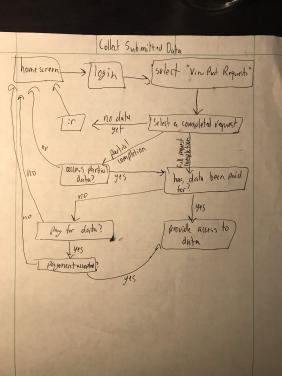 Collect Submitted Data
homescreen
login
select "View Past Requests"
:(
no data
yet
Select a completed request
partial
completion
full request
completion
no
access partial
data?
yes
has data been paid
for?
no
no
no
pay for data?
yes
provide access to
data
yes
payment accepted?
yes